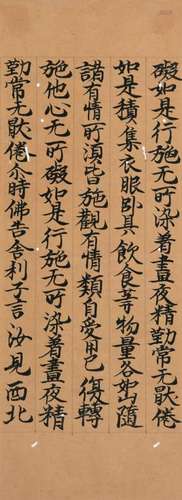 礙如是行施无所染着晝夜精勤常无猒倦
如是積集衣服卧具飲食等物量谷如山隨
諸有情所湏皆施觀有情類自愛用已復轉
施他心无所礙如是行施无所染着晝夜精
勤常无猒倦尒時佛告舍利子言汝見西北